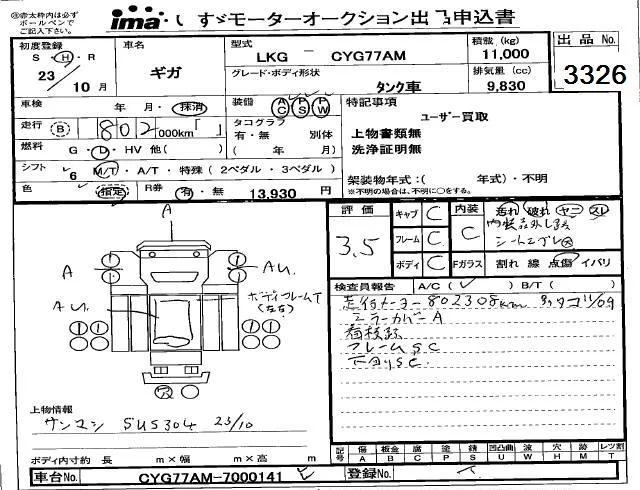 ※赤太枠内は必ず
ボールペンで
ご記入下さい。
ima いすゞモーターオークション出品申込書
初度登録
S ・ H ・ R
23 / 10 月
車名
ギガ
型式
LKG - CYG77AM
積載 (kg)
11,000
グレード・ボディ形状
タンク車
排気量 (cc)
9,830
出品 No.
3326
車検 年 月・抹消
装備 AC PS PW
走行 B 802 000km「 」
タコグラフ
有・無 別体
燃料 G・D・HV 他( )
( 年 月)
シフト 6 M/T・A/T・特殊(2ペダル・3ペダル)
色 指定 R券 有・無 13,930 円
特記事項
ユーザー買取
上物書類無
洗浄証明無
架装物年式:( 年式)・不明
※不明の場合は、不明に○をする。
評価 3.5
キャブ C
フレーム C
ボディ C
内装 C
汚れ 破れ ヤニ スレ
Fガラス 割れ 線 点傷 イバリ
検査員報告 A/C( ) B/T( )
802308km
ミラーカバーA
フレームSC
下回りSC
A
A
Au.
Au.
ボディフレームT
(左右)
上物情報
サンマシン SUS304 23/10
ボディ内寸約 長 m×幅 m×高 m
記号 傷 A 板金 B 腐 C 塗 P 錆 S 凹凸曲 U 波 W 穴 H 跡 M レツ割 T
車台No. CYG77AM-7000141
登録No.